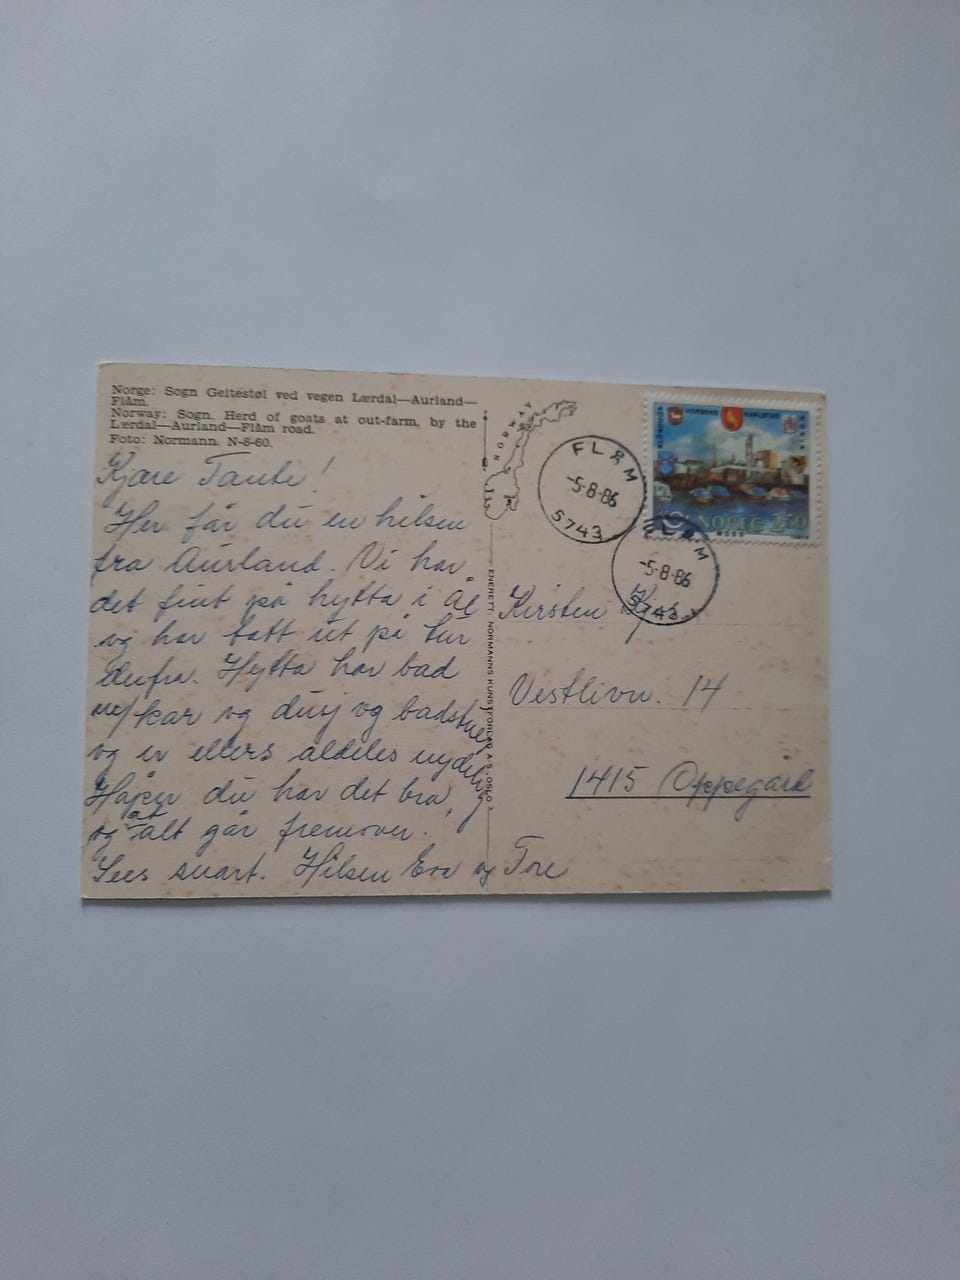 Norge: Sogn Geitestøl ved vegen Lærdal—Aurland—
Flåm.
Norway: Sogn. Herd of goats at out-farm, by the
Lærdal—Aurland—Flåm road.
Foto: Normann. N-8-60.
Kjære Tante!
Her får du en hilsen
fra Aurland. Vi har
det fint på hytta i Ål
og har tatt ut på tur
derfra. Hytta har bad
m/kar og dusj og badstue
og er ellers aldeles nydelig.
Håper du har det bra,
og at alt går fremover.
Sees snart. Hilsen Eva og Tore
NORWAY
ENERETT: NORMANNS KUNSTFORLAG A.S, OSLO
FLÅM
-5-8-86
5743
FLÅM
-5-8-86
5743
NORDBORG HORSENS KARLSTAD NOKIA
NOREG 250
MOSS
Kirsten
Vestlivn. 14
1415 Oppegård